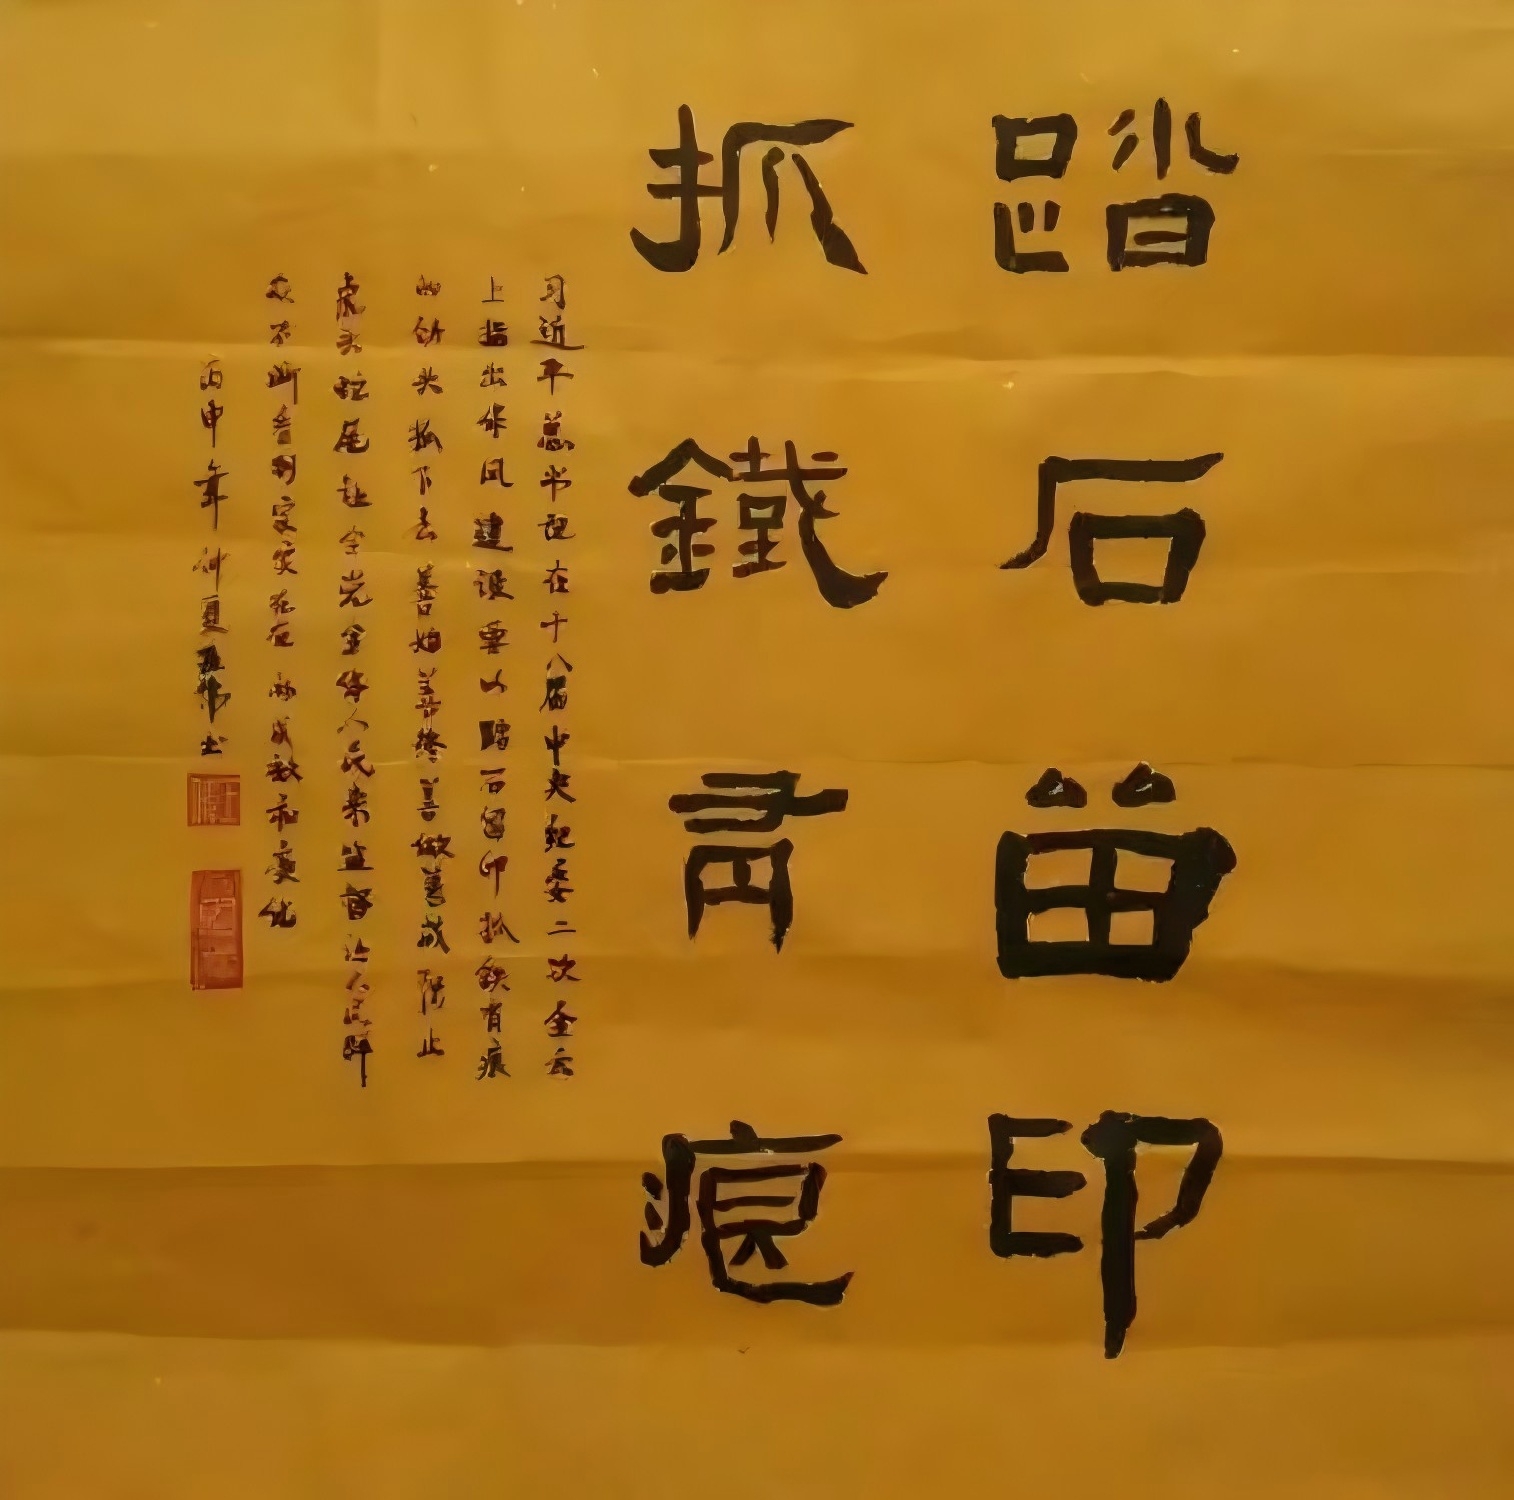 踏石畱印
抓鐵有痕
习近平总书记在十八届中央纪委二次全会
上指出作风建设要以踏石留印抓铁有痕
的劲头抓下去善始善终善做善成防止
虎头蛇尾让全党全体人民来监督让人民群
众不断看到实实在在的成效和变化
丙申年仲夏